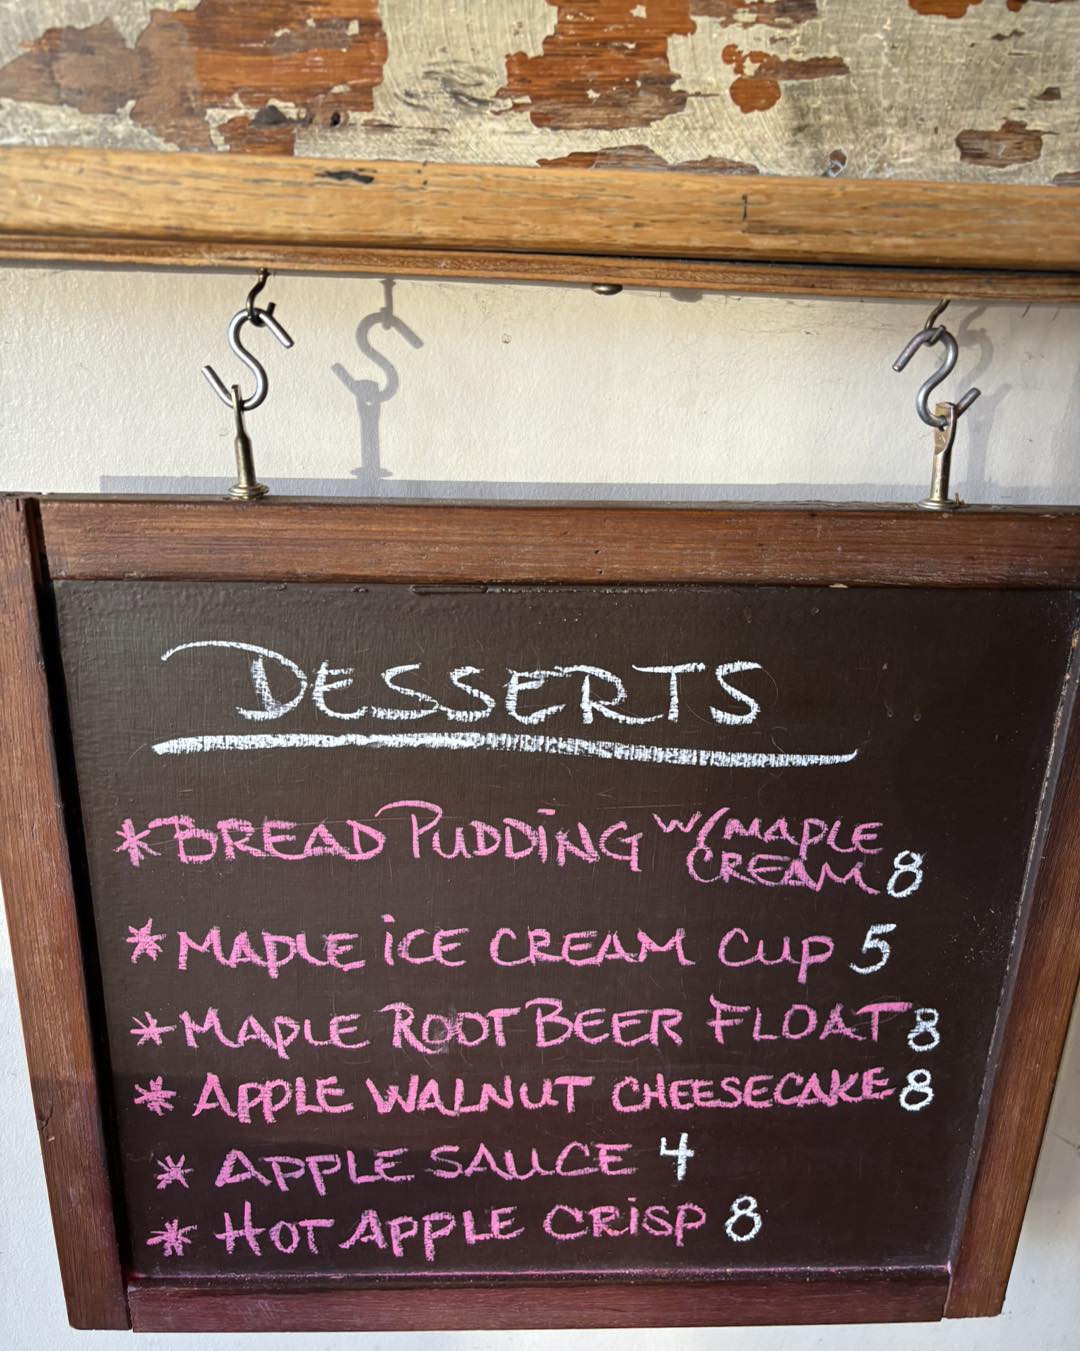 DESSERTS
*BREAD PUDDING W/MAPLE
CREAM 8
*MAPLE ICE CREAM CUP 5
*MAPLE ROOT BEER FLOAT 8
*APPLE WALNUT CHEESECAKE 8
*APPLE SAUCE 4
*HOT APPLE CRISP 8